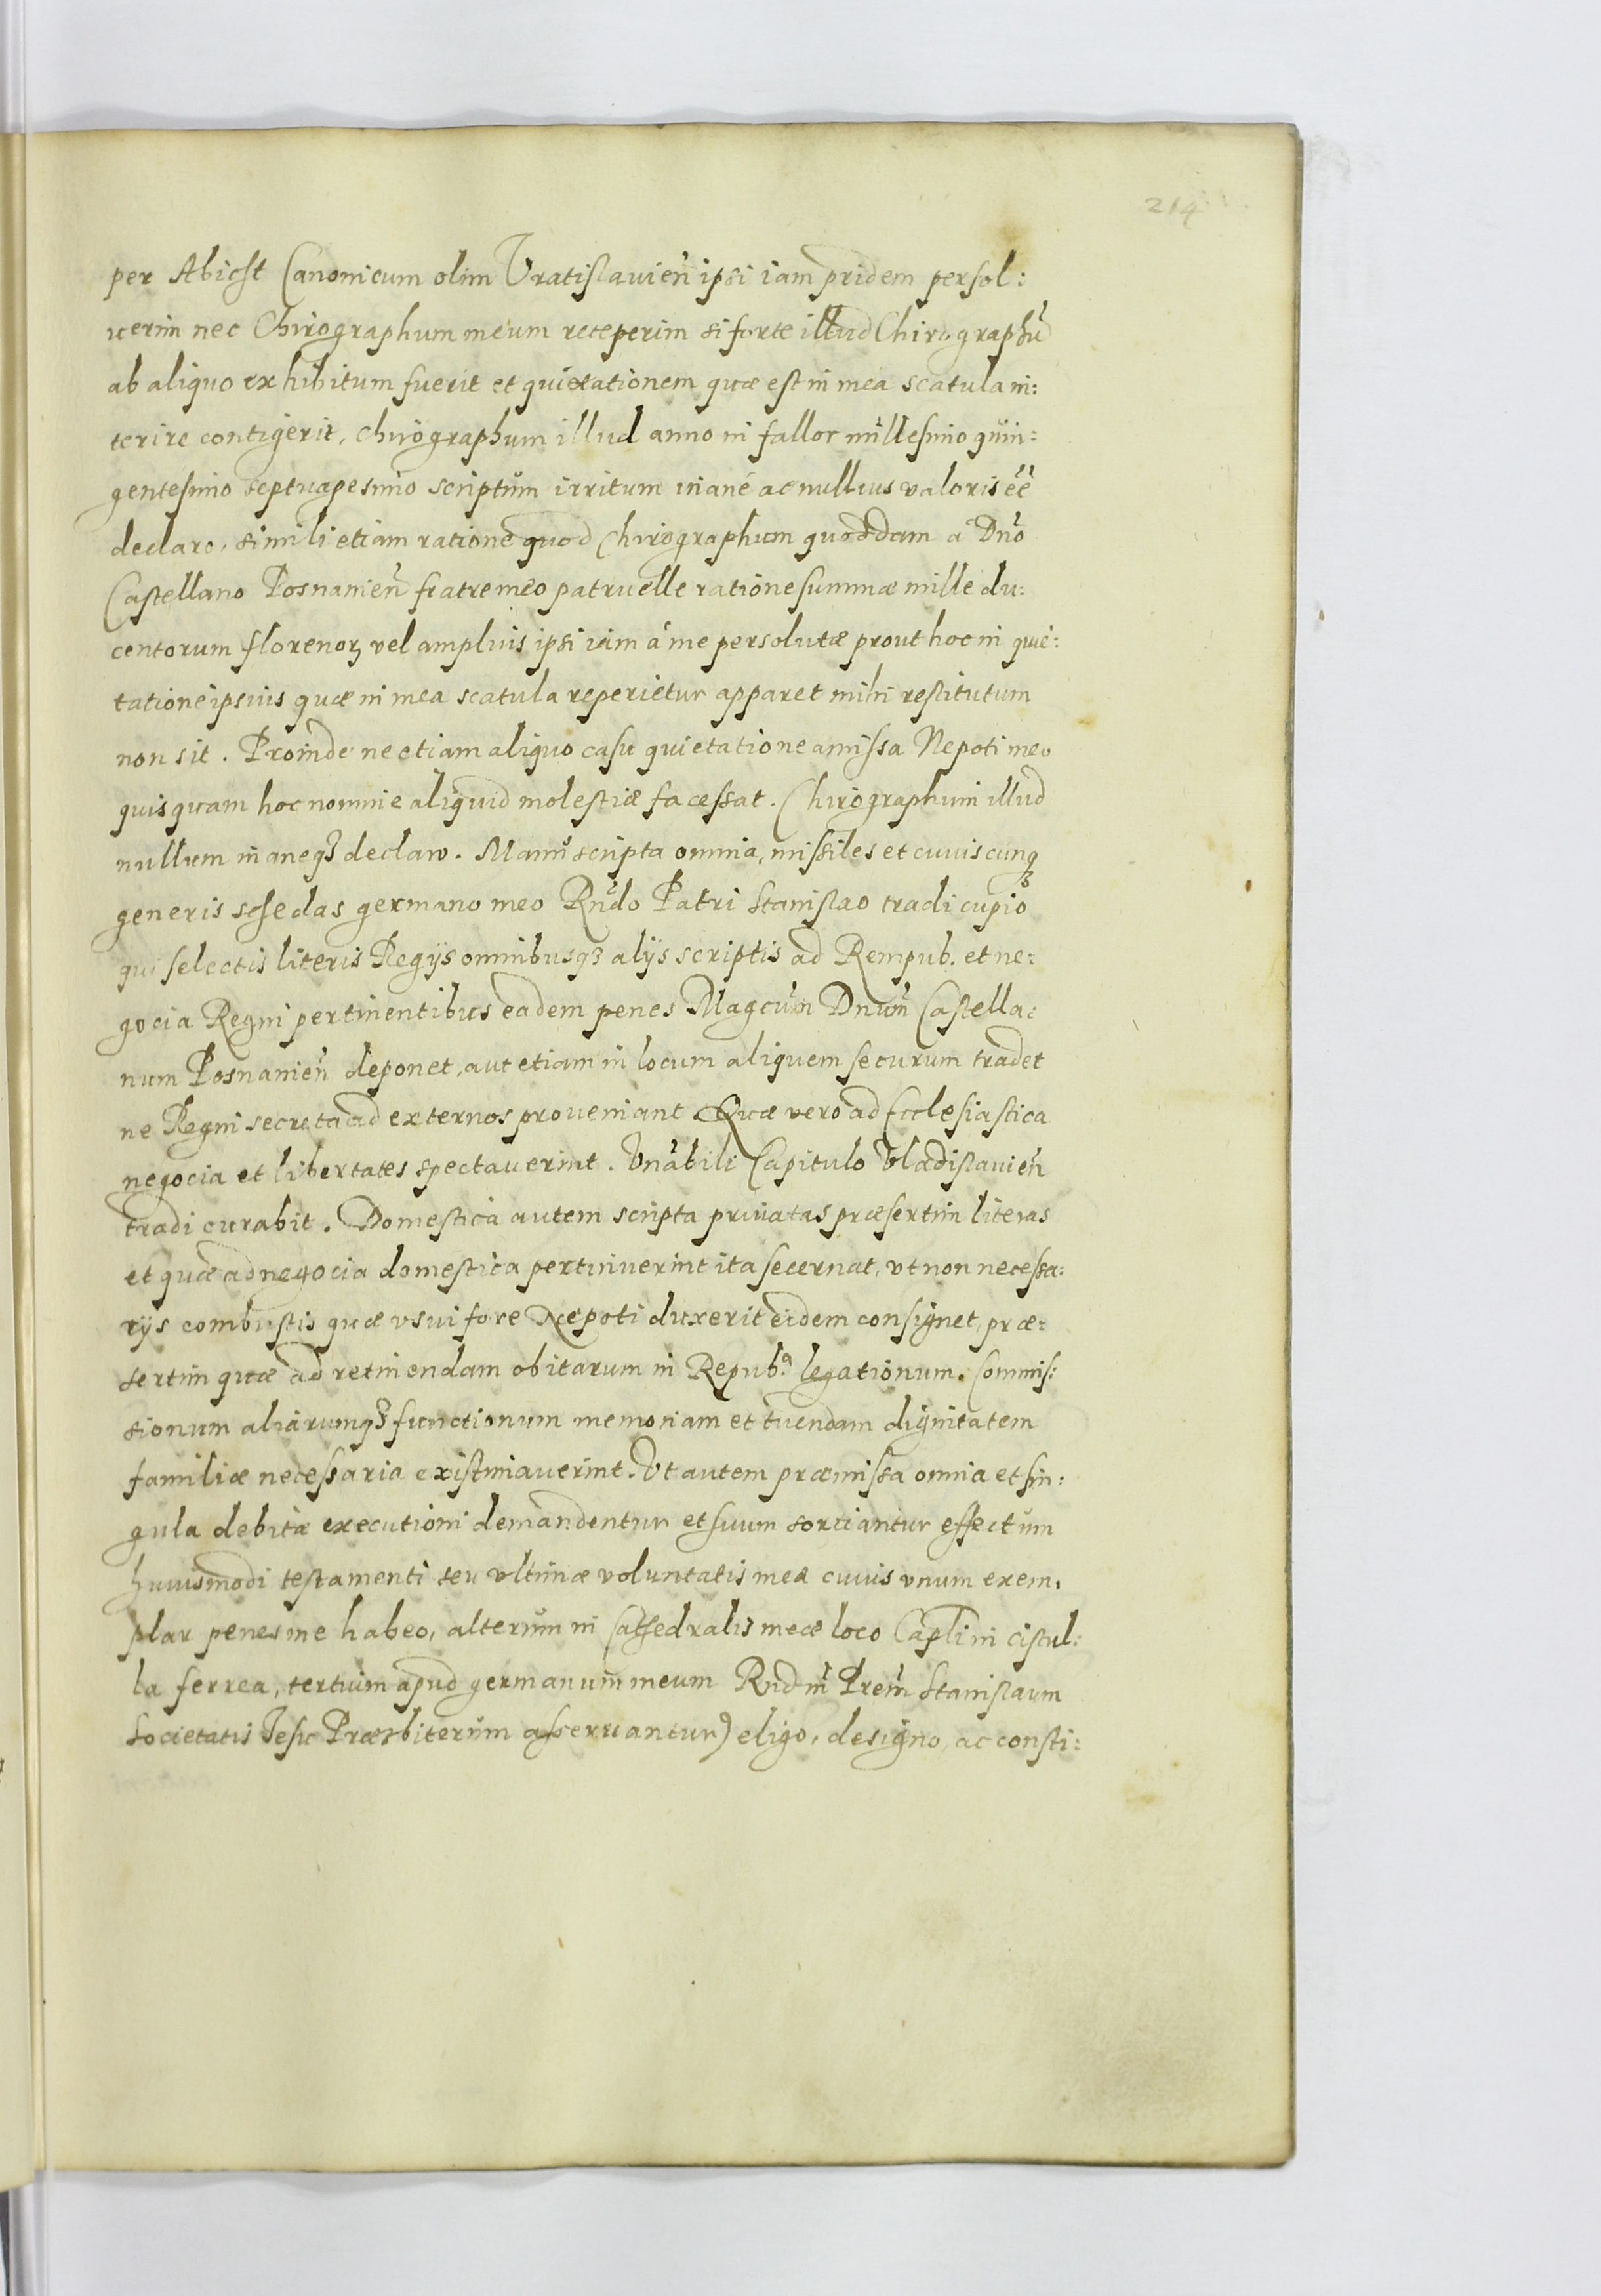 214
per Abicht Canonicum olim Vratislavień ipsi iam pridem persol:
uerim nec Chirographum meum receperim si forte illud Chirographū
ab aliquo exhibitum fuerit et quietationem quæ est in mea scatula in:
terire contigerit, chirographum illud anno ni fallor millesimo quin:
gentesimo septuagesimo scriptum irritum inane ac nullius valoris eē
declaro, simili etiam ratione quod Chirographum quoddam a Dno
Castellano Posnanień fratre meo patruelle ratione summæ mille du:
centorum florenorꝫ vel amplius ipsi iam á me persolutæ prout hoc in quie:
tatione ipsius quæ in mea scatula reperietur apparet mihi restitutum
non sit. Proinde ne etiam aliquo casu quietatione amissa Nepoti meo
quisquam hoc nomine aliquid molestiæ facessat. Chirographum illud
nullum inaneqꝫ declaro. Manuscripta omnia, missiles et cuiuscunqꝫ
generis schedas germano meo Rndo Patri Stanislao tradi cupio
qui selectis literis Regijs omnibusqꝫ alijs scriptis ad Rempub. et ne:
gocia Regni pertinentibus eadem penes Magcum Dnum Castella:
num Posnanień deponet, aut etiam in locum aliquem securum tradet
ne Regni secreta ad externos proveniant Quæ vero ad Ecclesiastica
negocia et libertates spectaverint. Vnabili Capitulo Vladislavień
tradi curabit. Domestica autem scripta privatas præsertim literas
et quæ ad negocia domestica pertinuerint ita secernat, ut non necessa:
rijs combustis quæ usui fore Nepoti duxerit eidem consignet, præ:
sertim quæ ad retinendam obitarum in Repub.ᵃ legationum. Commis:
sionum aliarumqꝫ functionum memoriam et tuendam dignitatem
familiæ necessaria existimaverint. Ut autem præmissa omnia et sin:
gula debitæ executioni demandentur et suum sortiantur effectum
huiusmodi testamenti seu ultimæ voluntatis meæ cuius unum exem,
plar penes me habeo, alterum in Cathedralis meæ loco Capli in cistul:
la ferrea, tertium apud germanum meum Rndm Prem Stanislaum
Societatis Jesu Præsbiterum asservantur) eligo, designo, ac consti: